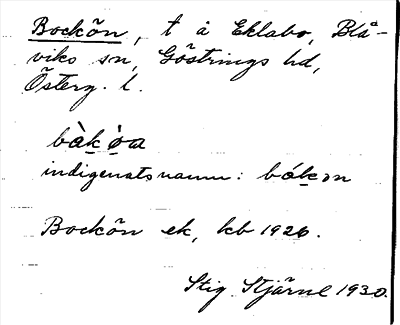 Bockön, t å Eklabo, Blå-
viks sn, Göstrings hd,
Österg. l.
bàk̲ø̀a
indigenatsnamn: bók̲ən
Bockön ek, kb 1926.
Stig Stjärne 1930.